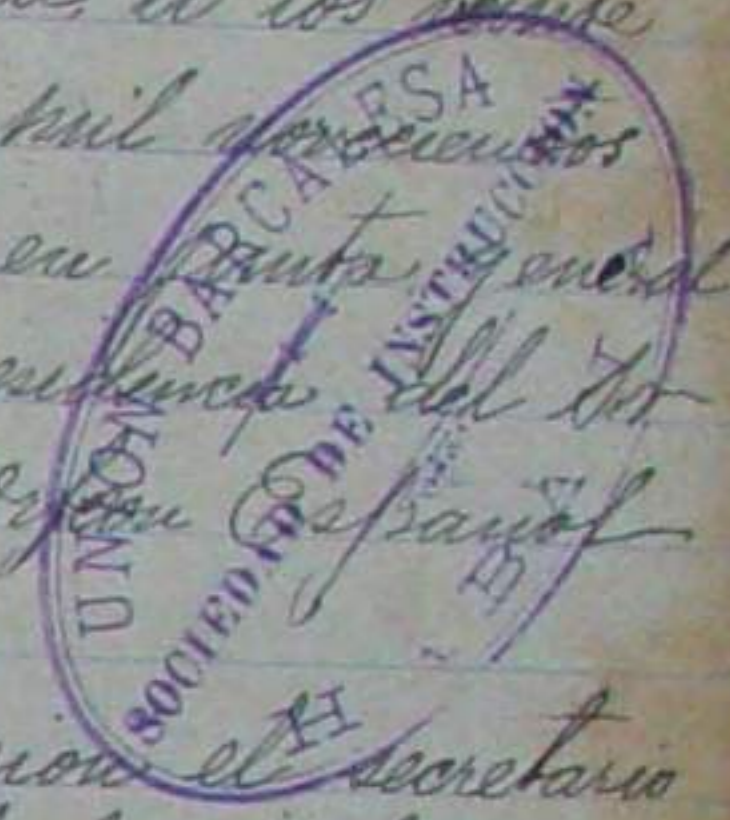 a los veinte
mil novecientos
en Junta General
esidencia del Sr
Español
el secretario
UNION BARCALESA
SOCIEDAD DE INSTRUCCION
H